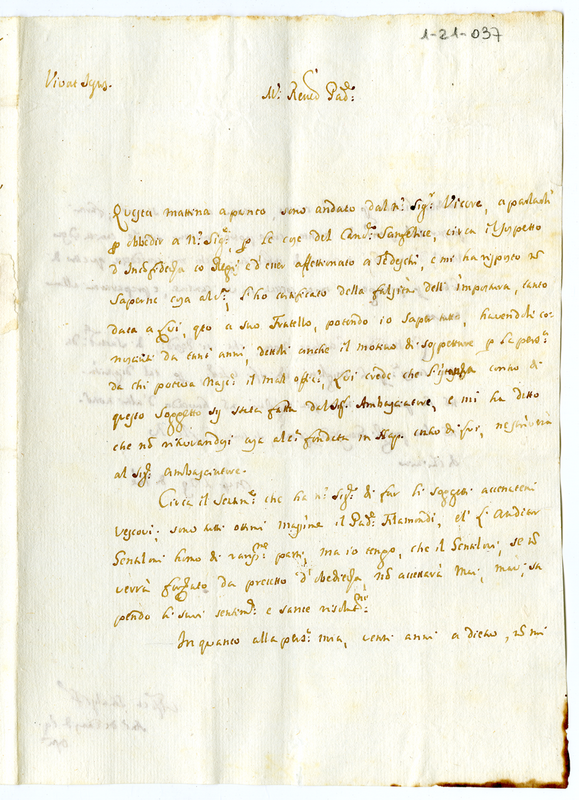 1-21-037
Vivat Jesus.
M. Revdo Pad.
Questa mattina a punto sono andato dal n. Sig. Vicere, a parlarli
p obbedir a N. Sig. p le cose del Can. Sanfelice, circa il sospetto
d'Inconfidenza co Regi e d'esser affettionato a Tedeschi, e mi ha risposto no
saperne cosa alc., li ho certificato della falsità dell'impostura, tanto
data a Lui, qto a suo Fratello, potendo io saper tutto, havendoli co-
nosciuti da tanti anni, detoli anche il motivo di sospettare p le pers.
da chi poteva nascer il mal offic., Lui crede che l'istanza contro di
questo soggetto sij stata fatta dal Sig. Ambasciatore, e mi ha detto
che nò ritrovandosi cosa alc. fondata in Nap. contro di lui, ne scriverà
al Sig. Ambasciatore.
Circa il sentim. che ha N. Sig. di far li soggetti accennatemi
Vescovi, sono tutti ottimi massime il Pad. Filamondi, el P. Andior
Gentiloni homo di rariss. parti, ma io temo, che il Gentiloni, se nò
verrà forzato da precetto d'obedieza, nò accettarà mai, mai, sa
pendo li suoi sentim. e sante risolut.
In quanto alla pers. mia, venti anni a dietro, nò mi